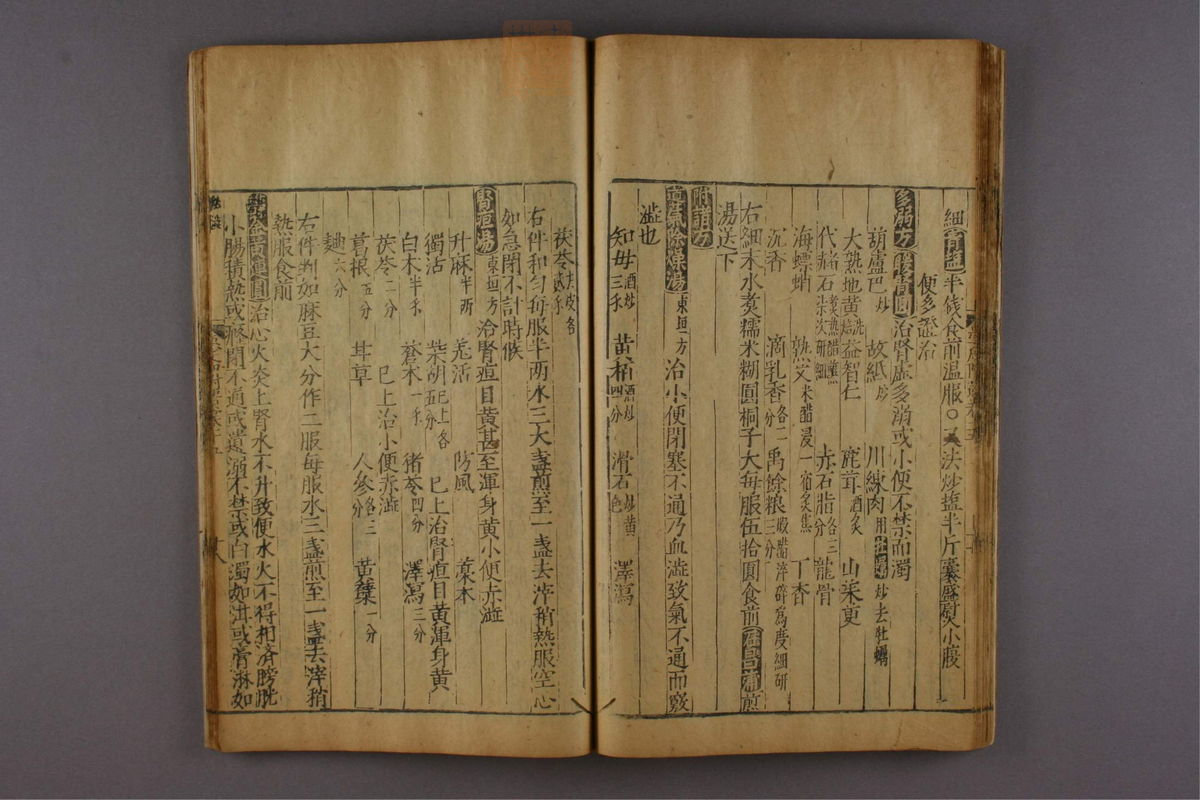 半錢食前温服○又法炒塩半斤囊盛熨小腹
便多
治腎虚多溺或小便不禁而濁
葫蘆巴炒 故紙炒 川練肉用牡蠣炒去牡蠣
大熟地黄 益智仁 鹿茸酒炙 山茱萸
代赭石 赤石脂各三分 龍骨
海螵蛸 熟艾米醋浸一宿炙焦 丁香
沉香 滴乳香各二分 禹餘粮三分 煅醋淬碎爲度細研
右細末水煮糯米糊圓桐子大每服伍拾圓食前菖蒲煎
湯送下
附諸方
導氣除燥湯東垣方 治小便閉塞不通乃血澁致氣不通而竅
澁也
知母酒炒三錢 黄栢酒炒四分 滑石炒黄色 澤瀉
茯苓去皮各
右件和勻每服半两水三大盞煎至一盞去滓稍熱服空心
如急閉不計時候
腎疸湯東垣方 治腎疸目黄甚至渾身黄小便赤澁
升麻半两 羗活 防風 藁本
獨活 柴胡已上各五分 已上治腎疸目黄渾身黄
白术半錢 蒼术一錢 猪苓四分 澤瀉三分
茯苓二分 已上治小便赤澁
葛根五分 甘草 人參各三分 黄蘗一分
六分
右件判如麻豆大分作二服每服水三盞煎至一盞去滓稍
熱服食前
治心火炎上腎水不升致使水火不得相済膀胱
小腸積熱或癃閉不通或遺溺不禁或白濁如泔或膏淋如